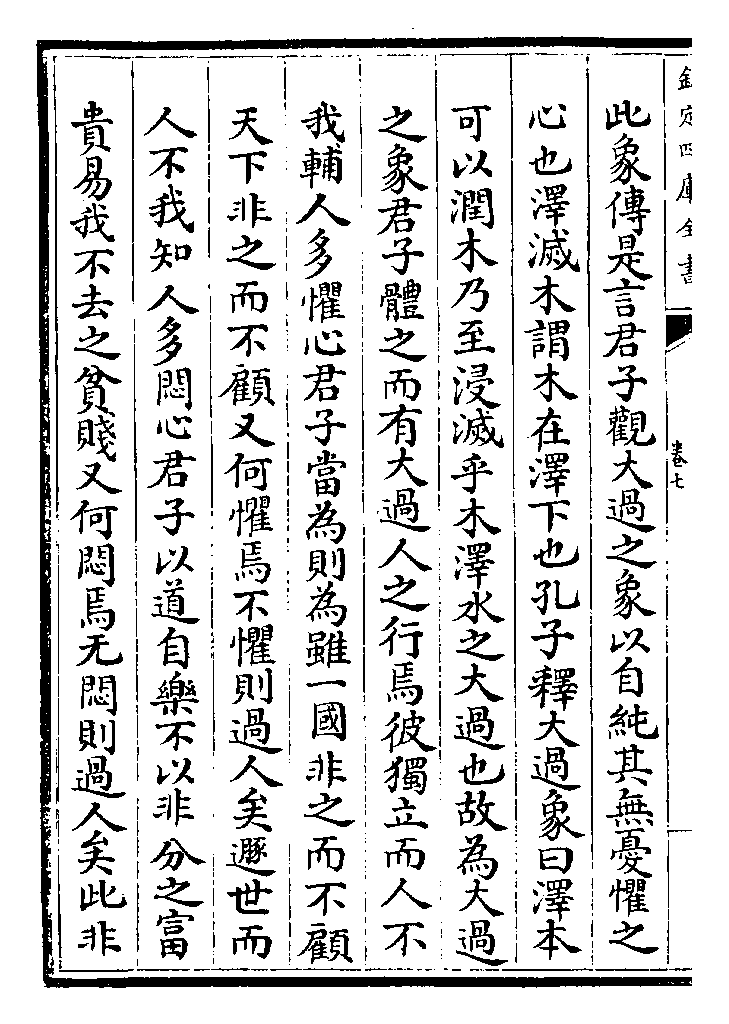 欽定四庫全書
卷七
此象傳是言君子觀大過之象以自純其無憂懼之
心也澤滅木謂木在澤下也孔子釋大過象曰澤本
可以潤木乃至浸滅乎木澤水之大過也故為大過
之象君子體之而有大過人之行焉彼獨立而人不
我輔人多懼心君子當為則為雖一國非之而不顧
天下非之而不顧又何懼焉不懼則過人矣遯世而
人不我知人多悶心君子以道自樂不以非分之富
貴易我不去之貧賤又何悶焉无悶則過人矣此非